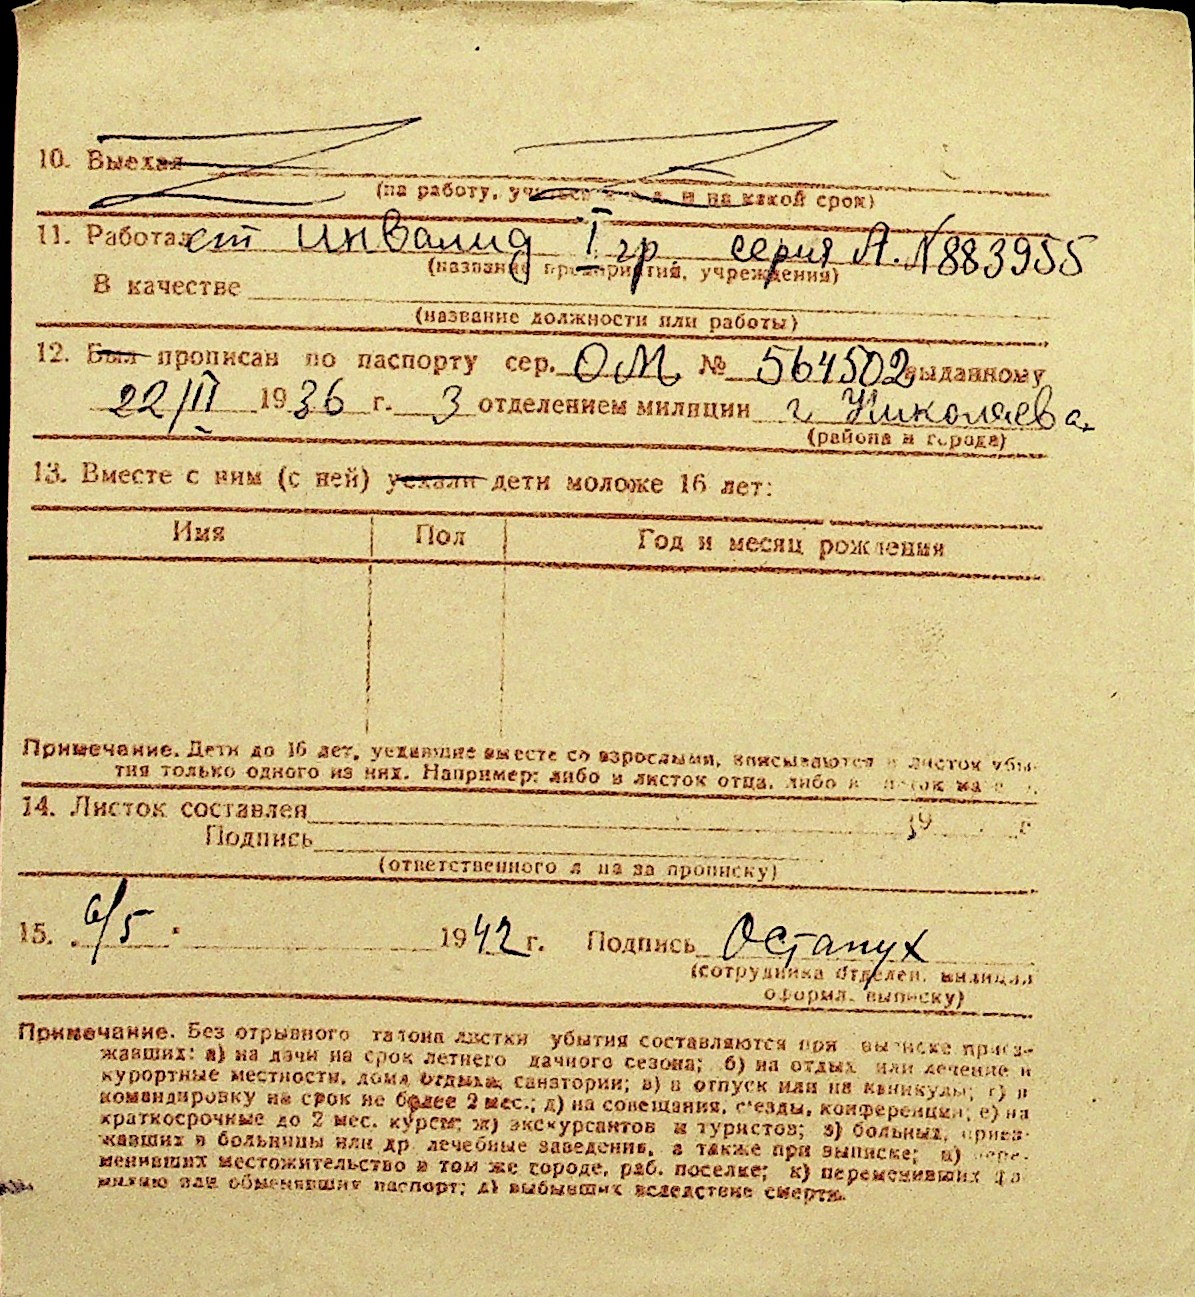 10. Выехал
(на работу, учиться и т. д. и на какой срок)
11. Работает инвалид I гр серия А. №883955
(название предприятия, учреждения)
В качестве
(название должности или работы)
12. Был прописан по паспорту сер. ОМ № 564502 выданному
22/II 1936 г. 3 отделением милиции г Николаева
(района и города)
13. Вместе с ним (с ней) уехали дети моложе 16 лет:
Имя Пол Год и месяц рождения
Примечание. Дети до 16 лет, уехавшие вместе со взрослыми, вписываются в листок убы-
тия только одного из них. Например: либо в листок отца, либо в листок
14. Листок составлен 19 г
Подпись
(ответственного л на за прописку)
15. 6/5 1942 г. Подпись Остапух
(сотрудника отделен. милиции
оформл. выписку)
Примечание. Без отрывного талона листки убытия составляются при выписке приез-
жавших: а) на дачи на срок летнего дачного сезона; б) на отдых или лечение в
курортные местности, дома отдыха, санатории; в) в отпуск или на каникулы; г) в
командировку на срок не более 2 мес.; д) на совещания, съезды, конференции; е) на
краткосрочные до 2 мес. курсы; ж) экскурсантов и туристов; з) больных, приез-
жавших в больницы или др. лечебные заведения, а также при выписке; и) пере-
менивших местожительство в том же городе, раб. поселке; к) переменивших фа-
милию или обменявших паспорт; л) выбывших вследствие смерти.